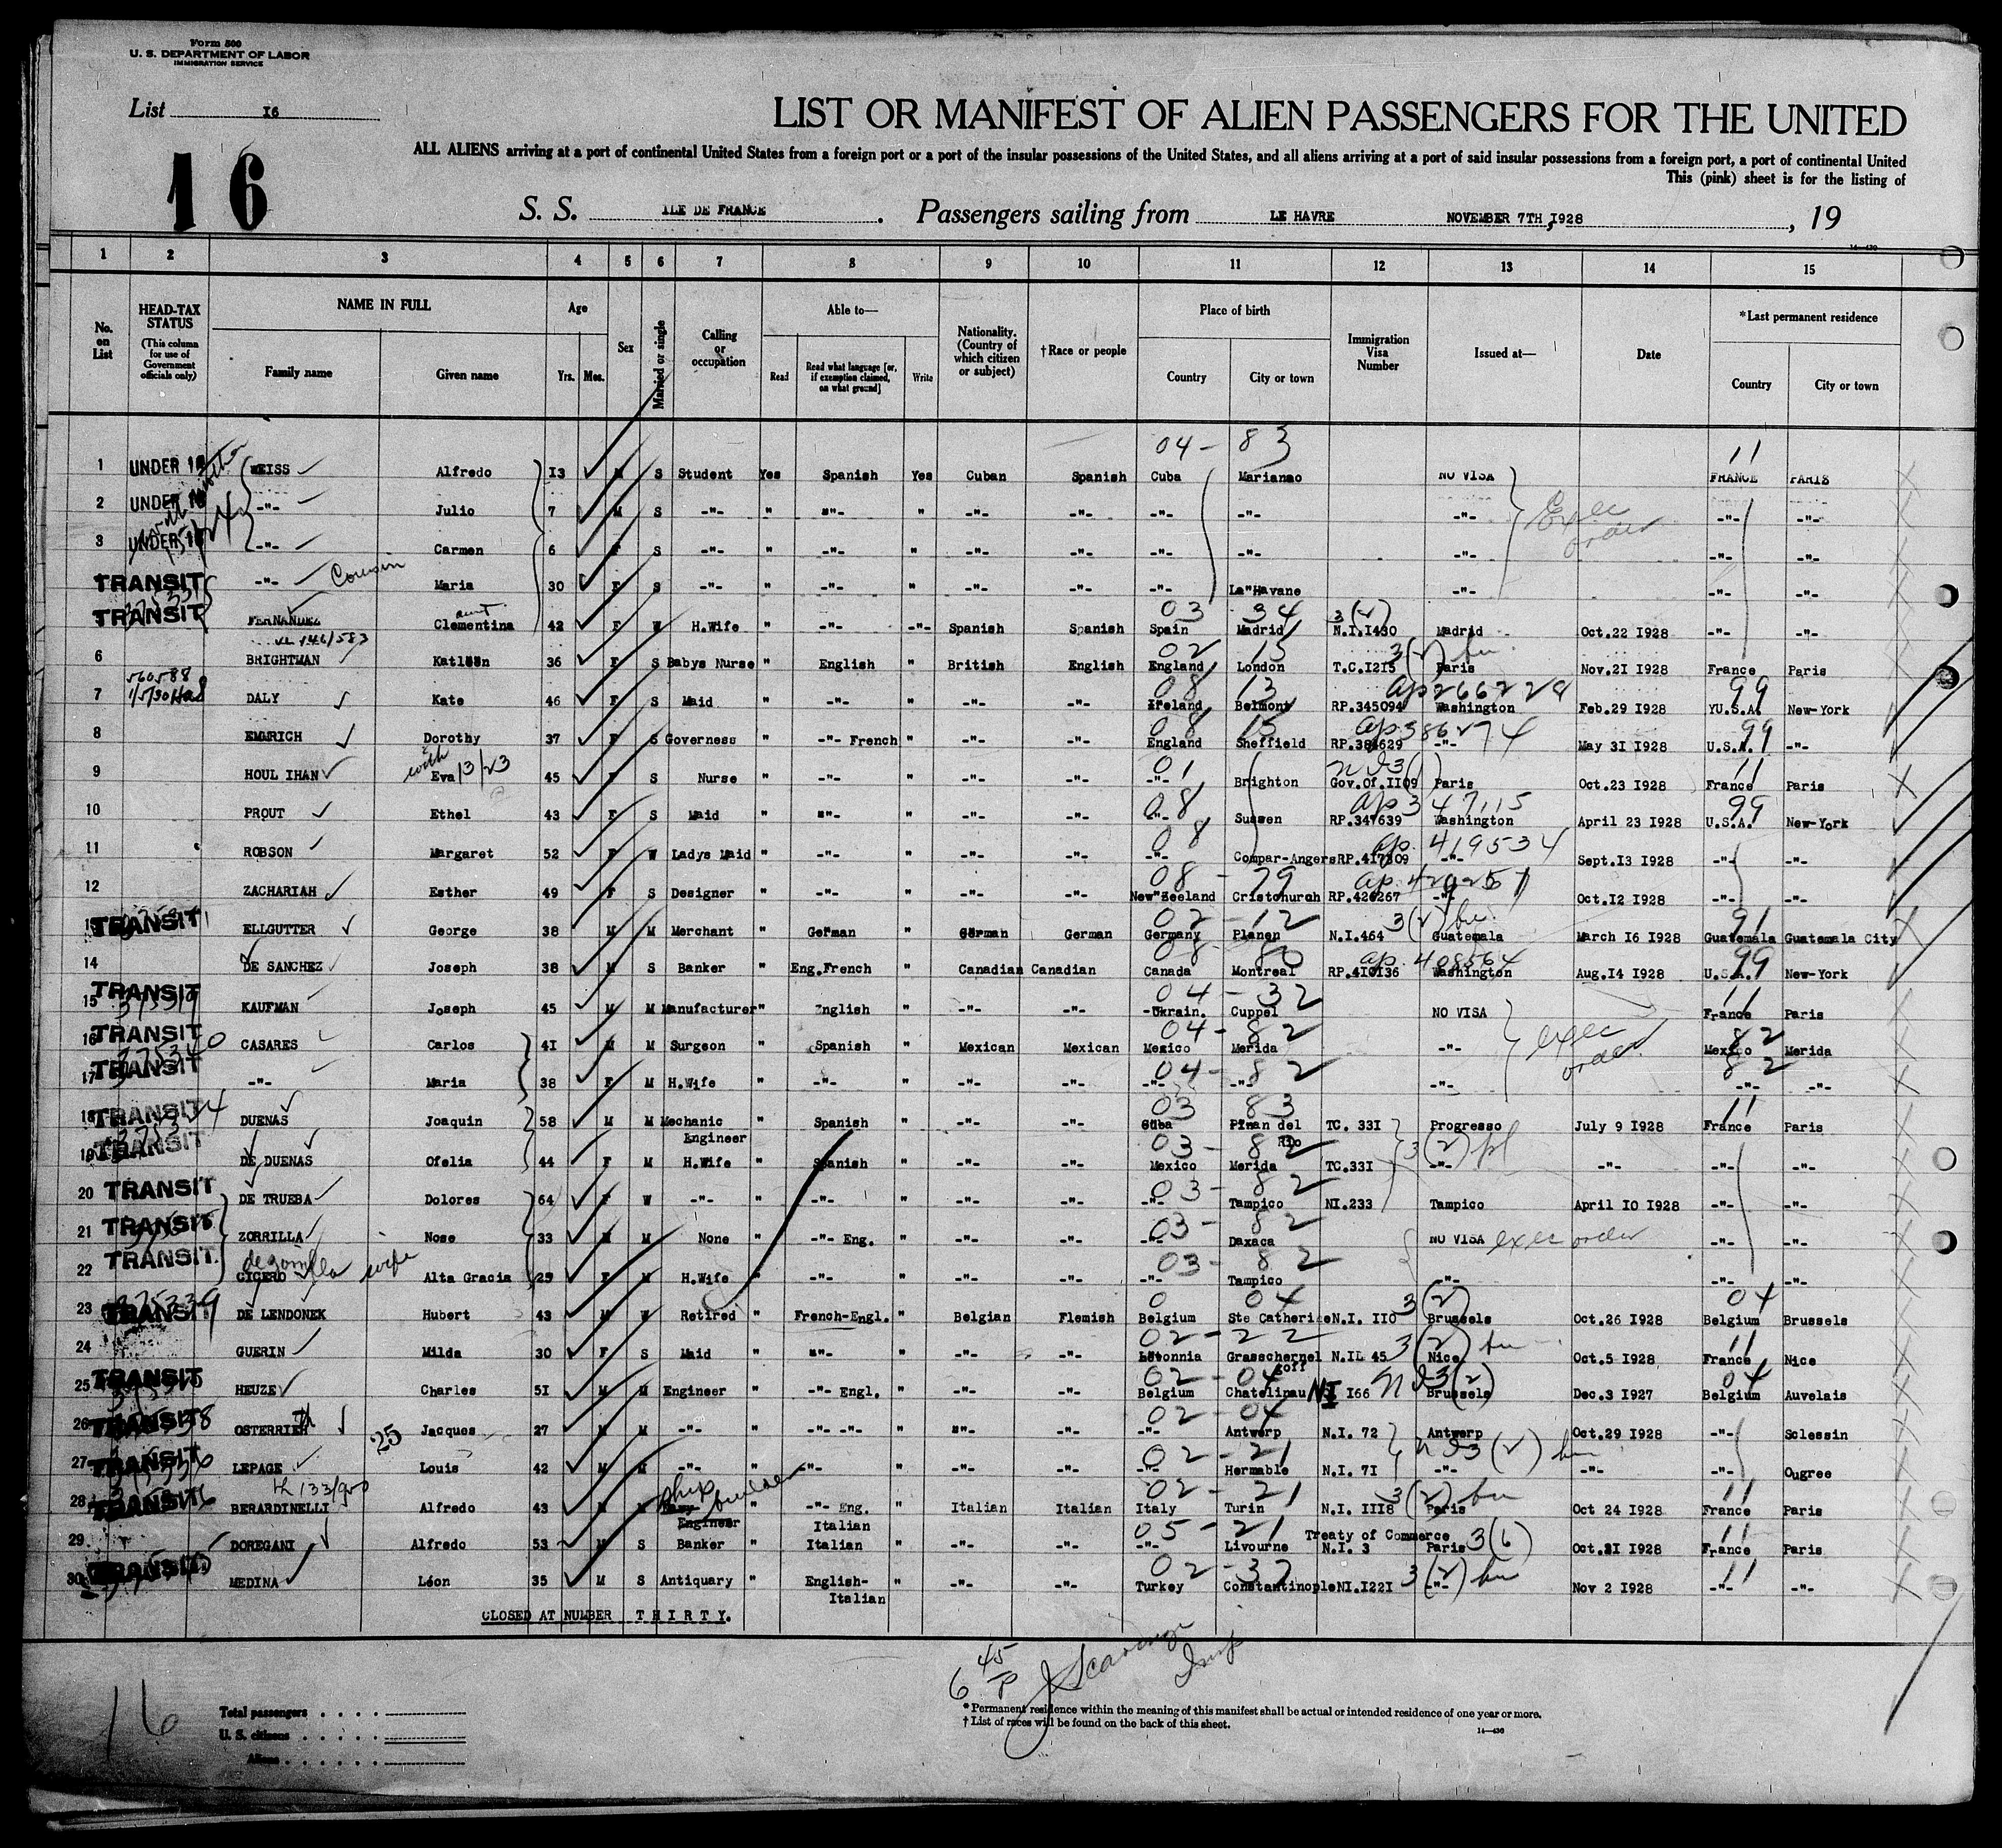 Form 500
U. S. DEPARTMENT OF LABOR
IMMIGRATION SERVICE
List 16
LIST OR MANIFEST OF ALIEN PASSENGERS FOR THE UNITED
ALL ALIENS arriving at a port of continental United States from a foreign port or a port of the insular possessions of the United States, and all aliens arriving at a port of said insular possessions from a foreign port, a port of continental United
This (pink) sheet is for the listing of
16
S. S. ILE DE FRANCE. Passengers sailing from LE HAVRE NOVEMBER 7TH, 1928, 19
14—430
1 2 3 4 5 6 7 8 9 10 11 12 13 14 15
No. on List
HEAD-TAX STATUS (This column for use of Government officials only)
NAME IN FULL Family name Given name
Age Yrs. Mos.
Sex
Married or single
Calling or occupation
Able to— Read Read what language [or, if exemption claimed, on what ground] Write
Nationality. (Country of which citizen or subject)
†Race or people
Place of birth Country City or town
Immigration Visa Number
Issued at—
Date
*Last permanent residence Country City or town
04 - 83 11
1 UNDER 16 WEISS Alfredo 13 M S Student Yes Spanish Yes Cuban Spanish Cuba Marianao NO VISA FRANCE PARIS
2 UNDER 16 -"- Julio 7 M S -"- " -"- " -"- -"- -"- -"- -"- Exec order -"- -"-
3 UNDER 16 -"- Carmen 6 F S -"- " -"- " -"- -"- -"- -"- -"- -"- -"-
TRANSIT -"- Cousin Maria 30 F S -"- " -"- " -"- -"- -"- La Havane -"- -"- -"-
03 34 3(2)
TRANSIT FERNANDEZ aunt Clementina 42 F W H.Wife " -"- -"- Spanish Spanish Spain Madrid N.I.1430 Madrid Oct.22 1928 -"- -"-
02 15 3(2)
6 BRIGHTMAN Katleen 36 F S Babys Nurse " English " British English England London T.C.1215 Paris Nov.21 1928 France Paris
560588 08 13 ap266228 99
7 1/5/30 DALY Kate 46 F S Maid " -"- " -"- -"- Ireland Belmont RP.345094 Washington Feb.29 1928 YU.S.A. New-York
08 15 ap386274 99
8 EMMRICH Dorothy 37 F S Governess " -"- French " -"- -"- England Sheffield RP.384629 -"- May 31 1928 U.S.A. -"-
01 11
9 HOULIHAN with 13/23 Eva 45 F S Nurse " -"- " -"- -"- -"- Brighton Gov.Of.1109 Paris Oct.23 1928 France Paris
08 ap347115 99
10 PROUT Ethel 43 F S Maid " -"- " -"- -"- -"- Sussen RP.347639 Washington April 23 1928 U.S.A. New-York
08 ap. 419534
11 ROBSON Margaret 52 F W Ladys Maid " -"- " -"- -"- -"- Compar-Angers RP.417309 -"- Sept.13 1928 -"- -"-
08 - 79
12 ZACHARIAH Esther 49 F S Designer " -"- " -"- -"- New Zeeland Cristchurch RP.426267 -"- Oct.12 1928 -"- -"-
02 - 12 3(2) 91
TRANSIT ELLGUTTER George 38 M M Merchant " German " German German Germany Planen N.I.464 Guatemala March 16 1928 Guatemala Guatemala City
08 - 80 ap. 408564 99
14 DE SANCHEZ Joseph 38 M S Banker " Eng.French " Canadian Canadian Canada Montreal RP.410136 Washington Aug.14 1928 U.S.A. New-York
04 - 32 11
15 TRANSIT KAUFMAN Joseph 45 M M Manufacturer " English " -"- -"- -Ukrain. Cuppel NO VISA France Paris
04 - 82 82
16 TRANSIT CASARES Carlos 41 M M Surgeon " Spanish " Mexican Mexican Mexico Merida -"- exec order Mexico Merida
04 - 82 82
17 TRANSIT -"- Maria 38 F M H.Wife " -"- " -"- -"- -"- -"- -"- -"- -"-
03 83 11
18 TRANSIT DUENAS Joaquin 58 M M Mechanic Engineer " Spanish " -"- -"- Cuba Pinan del Rio TC. 331 Progresso July 9 1928 France Paris
03 - 82 3(2) pl
19 TRANSIT DE DUENAS Ofelia 44 F M H.Wife " Spanish " -"- -"- Mexico Merida TC.331 -"- -"- -"- -"-
03 - 82
20 TRANSIT DE TRUEBA Dolores 64 F W -"- " -"- " -"- -"- -"- Tampico NI.233 Tampico April 10 1928 -"- -"-
03 - 82
21 TRANSIT ZORRILLA Nose 33 M M None " -"- Eng. " -"- -"- -"- Oaxaca NO VISA exec order -"- -"-
03 - 82
22 TRANSIT CICERO de Zorrilla wife Alta Gracia 29 F M H.Wife " -"- " -"- -"- -"- Tampico -"- -"- -"-
0 04 3(2) 04
23 TRANSIT DE LENDONEK Hubert 43 M W Retired " French-Engl. " Belgian Flemish Belgium Ste Catherine N.I. 110 Brussels Oct.26 1928 Belgium Brussels
02 - 22 3(2) 11
24 GUERIN Milda 30 F S Maid " -"- " -"- -"- Letonnia Grasschernel hoff N.I. 45 Nice Oct.5 1928 France Nice
02 - 04 3(2) 04
25 TRANSIT HEUZE Charles 51 M M Engineer " -"- Engl. " -"- -"- Belgium Chatelinau NI 166 Brussels Dec.3 1927 Belgium Auvelais
02 - 04
26 TRANSIT OSTERRIETH 25 Jacques 27 M M -"- " -"- -"- " -"- -"- -"- Antwerp N.I. 72 Antwerp Oct.29 1928 -"- Sclessin
02 - 21 3(2)
27 TRANSIT LEPAGE Louis 42 M M -"- " -"- " -"- -"- -"- Hermable N.I. 71 -"- -"- -"- Ougree
02 - 21 3(2) 11
28 TRANSIT BERARDINELLI Alfredo 43 M M ship builder Engineer " -"- Eng. Italian " Italian Italian Italy Turin N.I. 1118 Paris Oct 24 1928 France Paris
05 - 21 Treaty of Commerce 3(6) 11
29 DOREGANI Alfredo 53 M S Banker " Italian " -"- -"- -"- Livourne N.I. 3 Paris Oct.31 1928 France Paris
02 - 37 3(2) 11
30 TRANSIT MEDINA Léon 35 M S Antiquary " English-Italian " -"- -"- Turkey Constantinople NI.1221 -"- Nov 2 1928 -"- -"-
CLOSED AT NUMBER THIRTY.
6 45 P
16
Total passengers
U. S. citizens
Aliens
*Permanent residence within the meaning of this manifest shall be actual or intended residence of one year or more.
†List of races will be found on the back of this sheet.
14—430